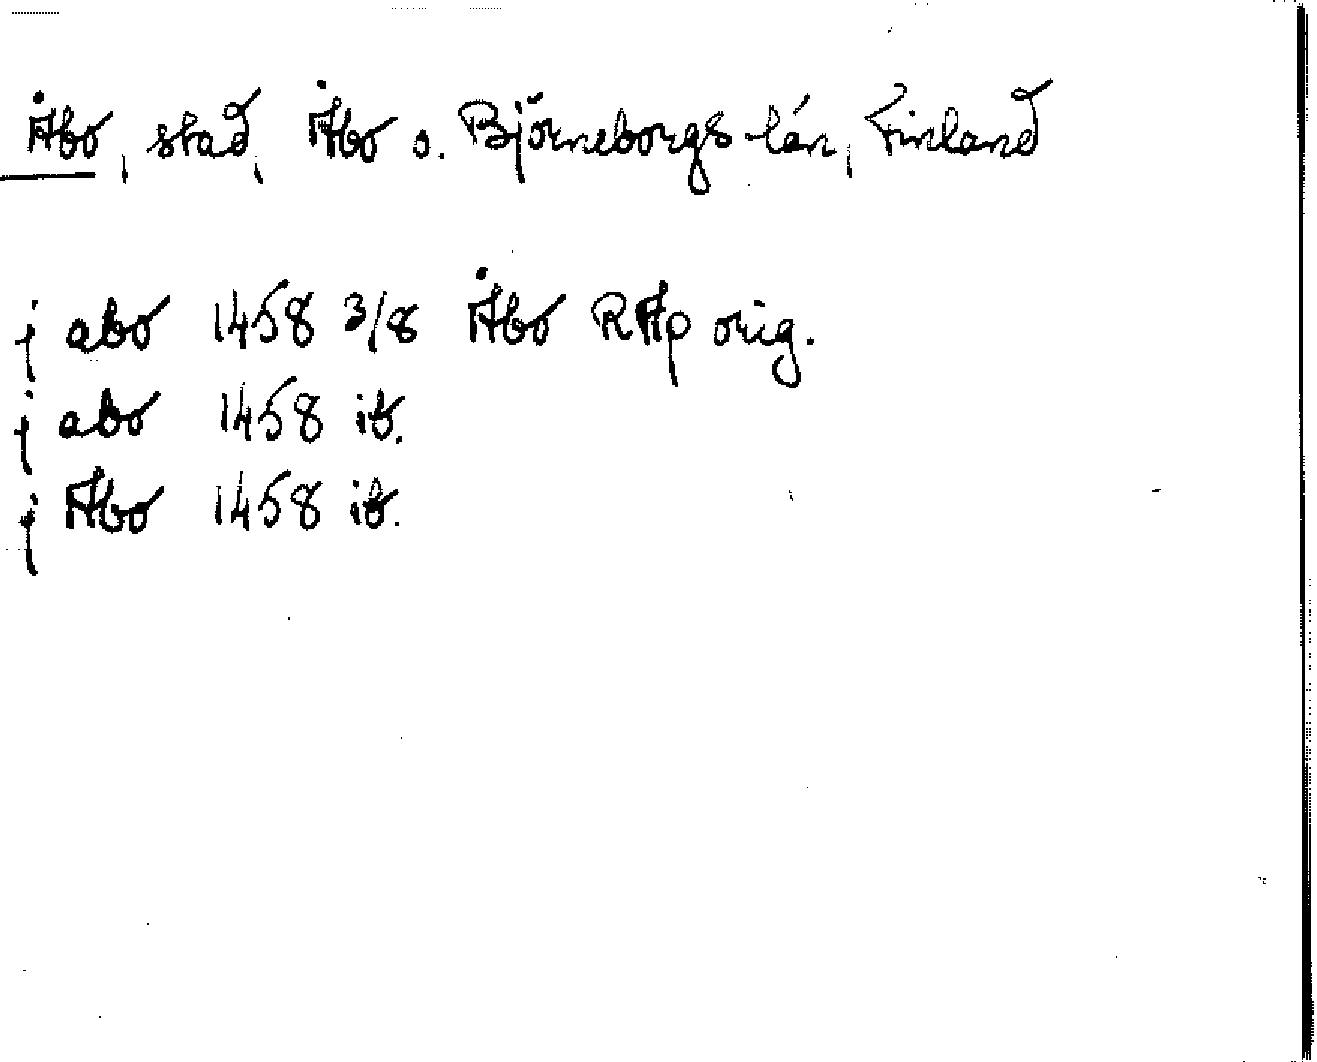 Åbo, stad, Åbo o. Björneborgs län, Finland
j abo 1458 3/8 Åbo RAp orig.
j abo 1458 ib.
j Abo 1458 ib.